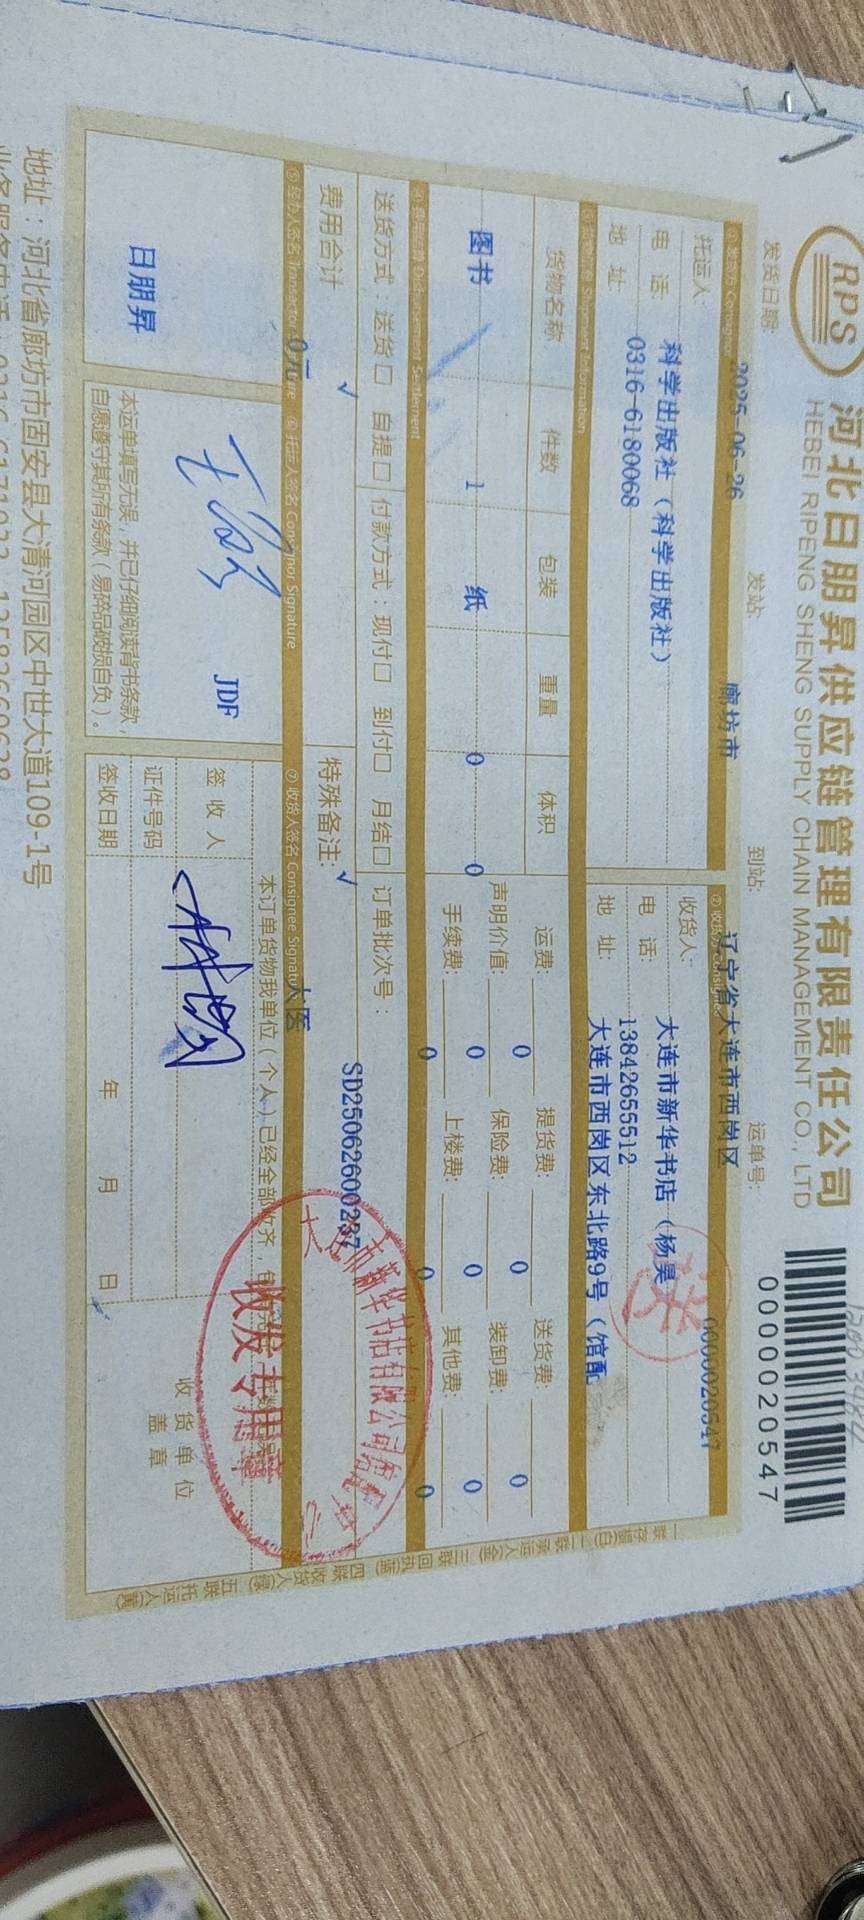 RPS
河北日朋昇供应链管理有限责任公司
HEBEI RIPENG SHENG SUPPLY CHAIN MANAGEMENT CO., LTD
0000020547
发货日期: 2025-06-26 发站: 廊坊市 到站: 辽宁省大连市西岗区 运单号: 0000020547
托运人: 科学出版社(科学出版社)
电 话: 0316-6180068
地 址:
② 收货方
收货人: 大连市新华书店(杨昊
电 话: 13842655512
地 址: 大连市西岗区东北路9号(馆配
货物名称 件数 包装 重量 体积
图书 1 纸 0 0
运费: 0 提货费: 0 送货费: 0
声明价值: 0 保险费: 0 装卸费: 0
手续费: 0 上楼费: 0 其他费: 0
Disbursement Settlement
送货方式:送货□ 自提□ 付款方式:现付□ 到付□ 月结□ 订单批次号: SD250626000237
✓ ✓
费用合计 0元 特殊备注: 大医
⑤ 经办人签名 ⑥ 托运人签名 Consignor Signature ⑦ 收货人签名 Consignee Signature
日朋昇
JDF
本运单填写无误,并已仔细阅读背书条款,
自愿遵守其所有条款(易碎品破损自负)。
本订单货物我单位(个人)已经全部收齐,
签 收 人
证件号码
签收日期 年 月 日
收货单位
盖 章
收发专用章
一联存根(白) 二联承运人(金) 三联回执(蓝) 四联收货人(绿) 五联托运人(黄)
地址:河北省廊坊市固安县大清河园区中世大道109-1号